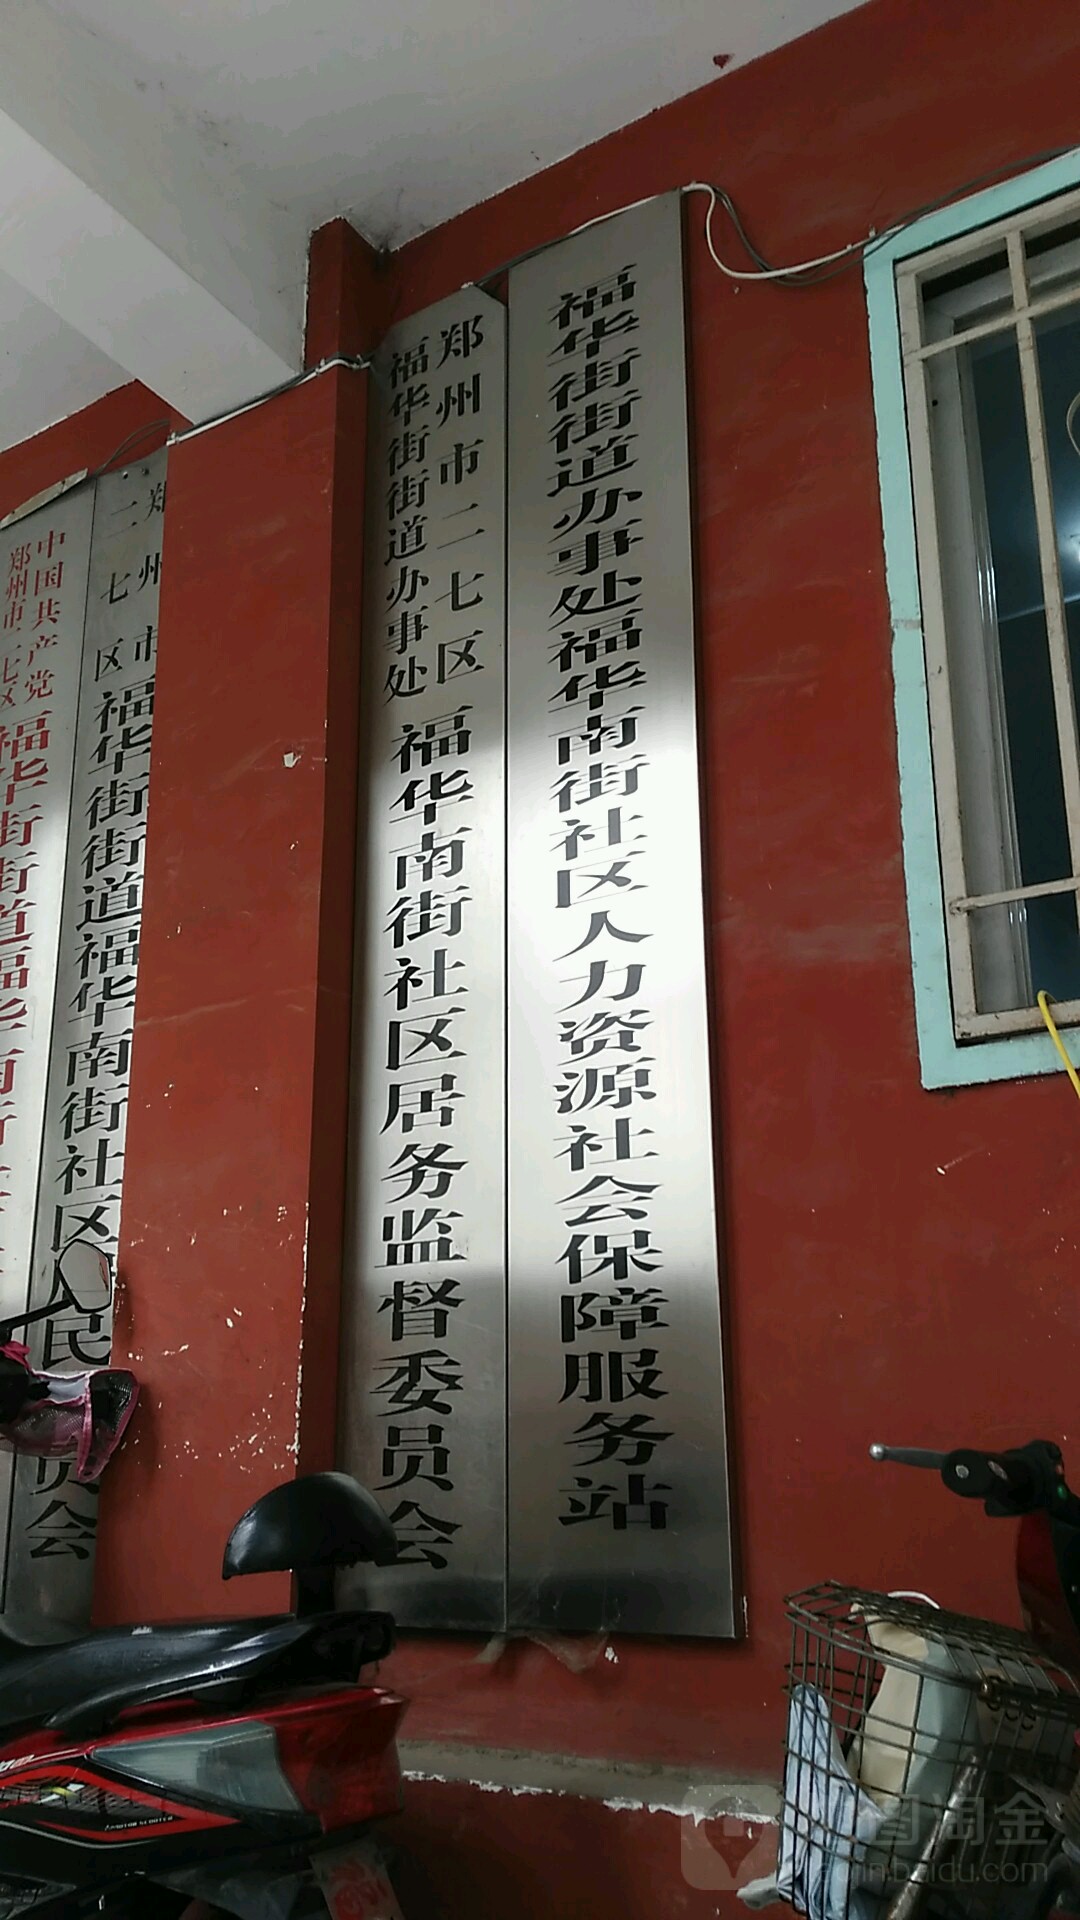 福华街街道办事处福华南街社区人力资源社会保障服务站
郑州市二七区
福华街街道办事处
福华南街社区居务监督委员会
郑州市
二七区
福华街街道福华南街社区居民
员会
中国共产党
郑州市二七区
福华街街道福华南街
MOTOR SCOOTER
图淘金
aojin.baidu.com